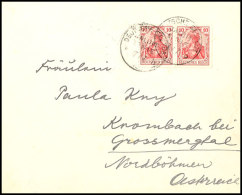 Fräulein
Paula Kny
Krombach bei
Grossmergthal
Nordböhmen
Oesterreich